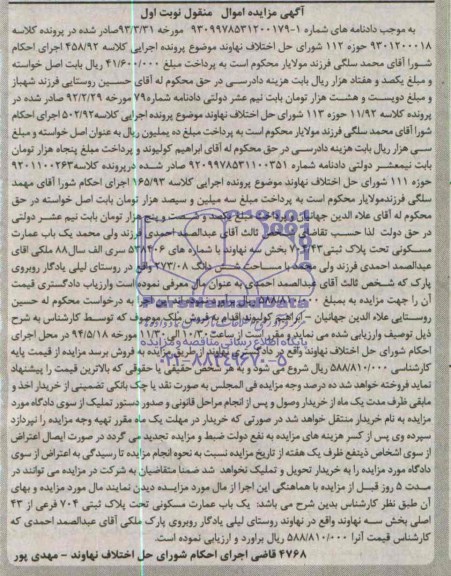 آگهی مزایده اموال منقول نوبت اول
به موجب دادنامه های شماره ۱-۹۳۰۹۹۷۸۵۳۱۲۰۰۱۷۹ مورخه ۹۳/۳/۳۱صادر شده در پرونده کلاسه
۹۳۰۱۲۰۰۰۱۸ حوزه ۱۱۲ شورای حل اختلاف نهاوند موضوع پرونده اجرایی کلاسه ۴۵۸/۹۲ اجرای احکام
شورا آقای محمد سلگی فرزند مولایار محکوم است به پرداخت مبلغ ۴۱/۶۰۰/۰۰۰ ریال بابت اصل خواسته
و مبلغ یکصد و هفتاد هزار ریال بابت هزینه دادرسی در حق محکوم له آقای حسین روستایی فرزند شهباز
و مبلغ دویست و هشت هزار تومان بابت نیم عشر دولتی دادنامه شماره۷۹ مورخه ۹۲/۲/۲۹ صادر شده در
پرونده کلاسه ۱۱/۹۲ حوزه ۱۱۳ شورای حل اختلاف نهاوند موضوع پرونده اجرایی کلاسه۵۰۲/۹۲ اجرای احکام
شورا آقای محمد سلگی فرزند مولایار محکوم است به پرداخت مبلغ ده میلیون ریال به عنوان اصل خواسته و مبلغ
سی هزار ریال بابت هزینه دادرسی در حق محکوم له آقای ابراهیم کولیوند و پرداخت مبلغ پنجاه هزار تومان
بابت نیمعشر دولتی دادنامه شماره ۹۲۰۹۹۷۸۵۳۱۱۰۰۳۵۱ صادر شده درپرونده کلاسه۹۲۰۱۱۰۰۲۶۳
حوزه ۱۱۱ شورای حل اختلاف نهاوند موضوع پرونده اجرایی کلاسه ۱۶۵/۹۳ اجرای احکام شورا آقای مهمد
سلگی فرزندمولایار محکوم است به پرداخت مبلغ سه میلین و سیصد هزار تومان بابت اصل خواسته در حق
محکوم له آقای علاء الدین جهانیان و پرداخت مبلغ یکصد و شصت و پنج هزار تومان بابت نیم عشر دولتی
در حق دولت لذا حسب تقاضای شخص ثالث آقای عبدالصمد احمدی فرزند ولی محمد یک باب عمارت
مسکونی تحت پلاک ثبتی۷۰۴/۴۳ بخش سه نهاوند با شماره های ۵۳۸۴۰۶ سری الف سال۸۸ ملکی اقای
عبدالصمد احمدی فرزند ولی محمد با مساحت شش دانگ ۲۷۳/۰۸ واقع در روستای لیلی یادگار روبروی
پارک که شخص ثالث آقای عبدالصمد احمدی به عنوان مال معرفی نموده است وارزیاب دادگستری قیمت
آن را جهت مزایده به بمبلغ ۵۸۸/۸۱۰/۰۰۰ ریال برآورد نموده اند این اجرا به درخواست محکوم له حسین
روستایی علاء الدین جهانیان - ابراهیم کولیوند اقدام به فروش ملک موصوف که توسط کارشناس به شرح
ذیل توصیف وارزیابی شده می نماید و مقرر است از ساعت۱۰/۳۰ الی ۱۱/۳۰مورخه ۹۴/۵/۱۸ در محل اجرای
احکام شورای حل اختلاف نهاوند واقع در دادگستری نهاوند از طریق مزایده به فروش برسد مزایده از قیمت پایه
کارشناسی ۵۸۸/۸۱۰/۰۰۰ ریال شروع می شود و به هر شخص حقیقی یا حقوقی که بالاترین قیمت را پیشنهاد
نماید فروخته خواهد شد ده درصد وجه مزایده فی المجلس به صورت نقد یا چک بانکی تضمینی از خریدار اخذ و
مابقی ظرف مدت یک ماه از خریدار وصول و پس از انجام مراحل قانونی و صدور دستور تملیک از سوی دادگاه مورد
مزایده به نام خریدار منتقل خواهد شد در صورتی که خریدار در مهلت یک ماه مقرر تهیه وجه مزایده را نپردازد
سپرده وی پس از کسر هزینه های مزایده به نفع دولت ضبط و مزایده تجدید می گردد در صورت ایصال اعتراض از
از سوی اشخاص ذینفع ظرف یک هفته از تاریخ مزایده نسبت به نحوه انجام مزایده تا رسیدگی به اعتراض از سوی
دادگاه مورد مزایده را به خریدار تحویل و تملیک نخواهد شد ضمنا متقاضیان به شرکت در مزایده می توانند در
مدت ۵ روز قبل از مزایده با هماهنگی این اجرا از مال مورد مزایده دیدن نمایند مال مورد مزایده و بهای
آن طبق نظر کارشناس بدین شرح می باشد: یک باب عمارت مسکونی تحت پلاک ثبتی ۷۰۴ فرعی از ۴۳
اصلی بخش سه نهاوند واقع در نهاوند روستای لیلی یادگار روبروی پارک ملکی آقای عبدالصمد احمدی که
کارشناس قیمت آنرا ۵۸۸/۸۱۰/۰۰۰ ریال برآورد و ارزیابی نموده است.
۴۷۶۸ قاضی اجرای احکام شورای حل اختلاف نهاوند - مهدی پور
پایگاه اطلاع رسانی مناقصه و مزایده
۰۲۱-۸۸۳۴۹۶۷۰-۵